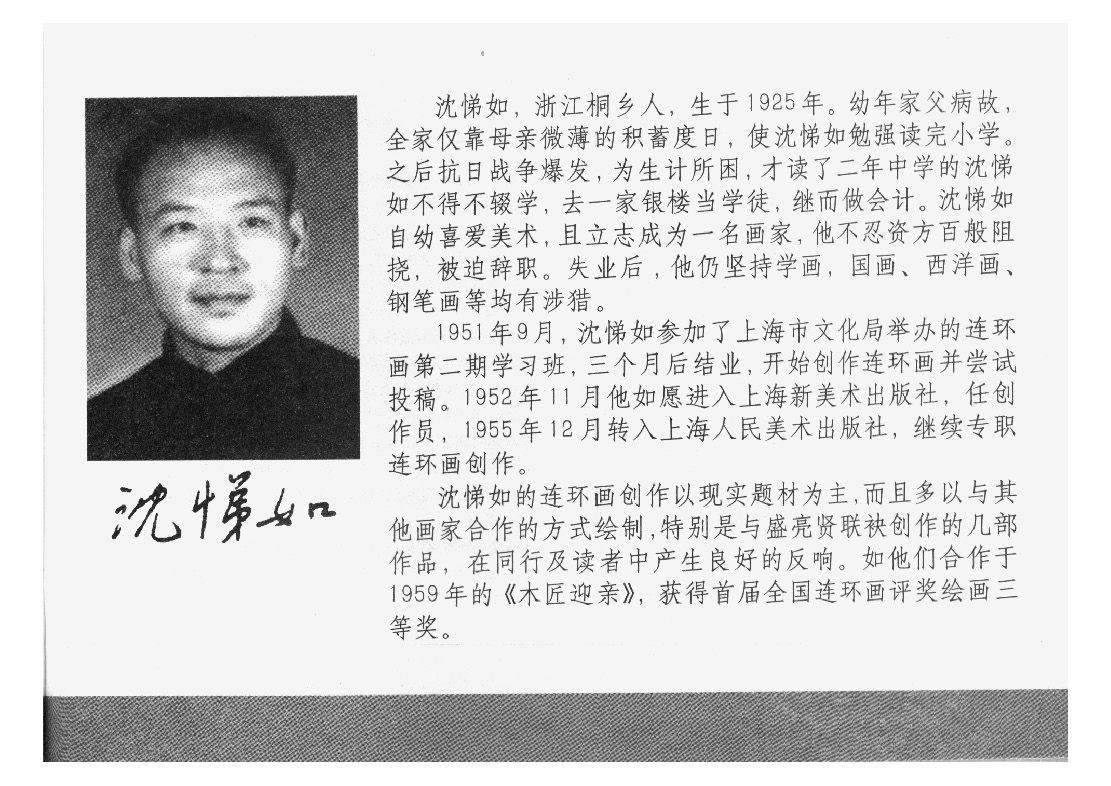 沈悌如，浙江桐乡人，生于1925年。幼年家父病故，
全家仅靠母亲微薄的积蓄度日，使沈悌如勉强读完小学。
之后抗日战争爆发，为生计所困，才读了二年中学的沈悌
如不得不辍学，去一家银楼当学徒，继而做会计。沈悌如
自幼喜爱美术，且立志成为一名画家，他不忍资方百般阻
挠，被迫辞职。失业后，他仍坚持学画，国画、西洋画、
钢笔画等均有涉猎。
1951年9月，沈悌如参加了上海市文化局举办的连环
画第二期学习班，三个月后结业，开始创作连环画并尝试
投稿。1952年11月他如愿进入上海新美术出版社，任创
作员，1955年12月转入上海人民美术出版社，继续专职
连环画创作。
沈悌如的连环画创作以现实题材为主，而且多以与其
他画家合作的方式绘制，特别是与盛亮贤联袂创作的几部
作品，在同行及读者中产生良好的反响。如他们合作于
1959年的《木匠迎亲》，获得首届全国连环画评奖绘画三
等奖。
沈悌如